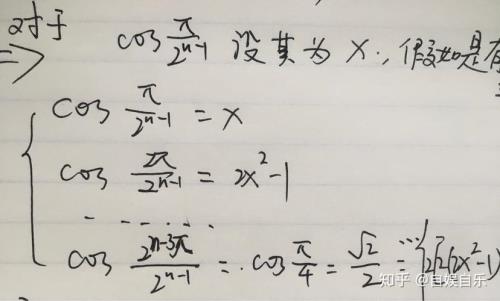 对于 cos π/2^{n-1} 设其为 x., 假如是有
⇒
cos π/2^{n-1} = x
cos 2π/2^{n-1} = 2x²-1
- - - - . . .
cos 2^{n-3}π/2^{n-1} = cos π/4 = √2/2 =
知乎 @自娱自乐